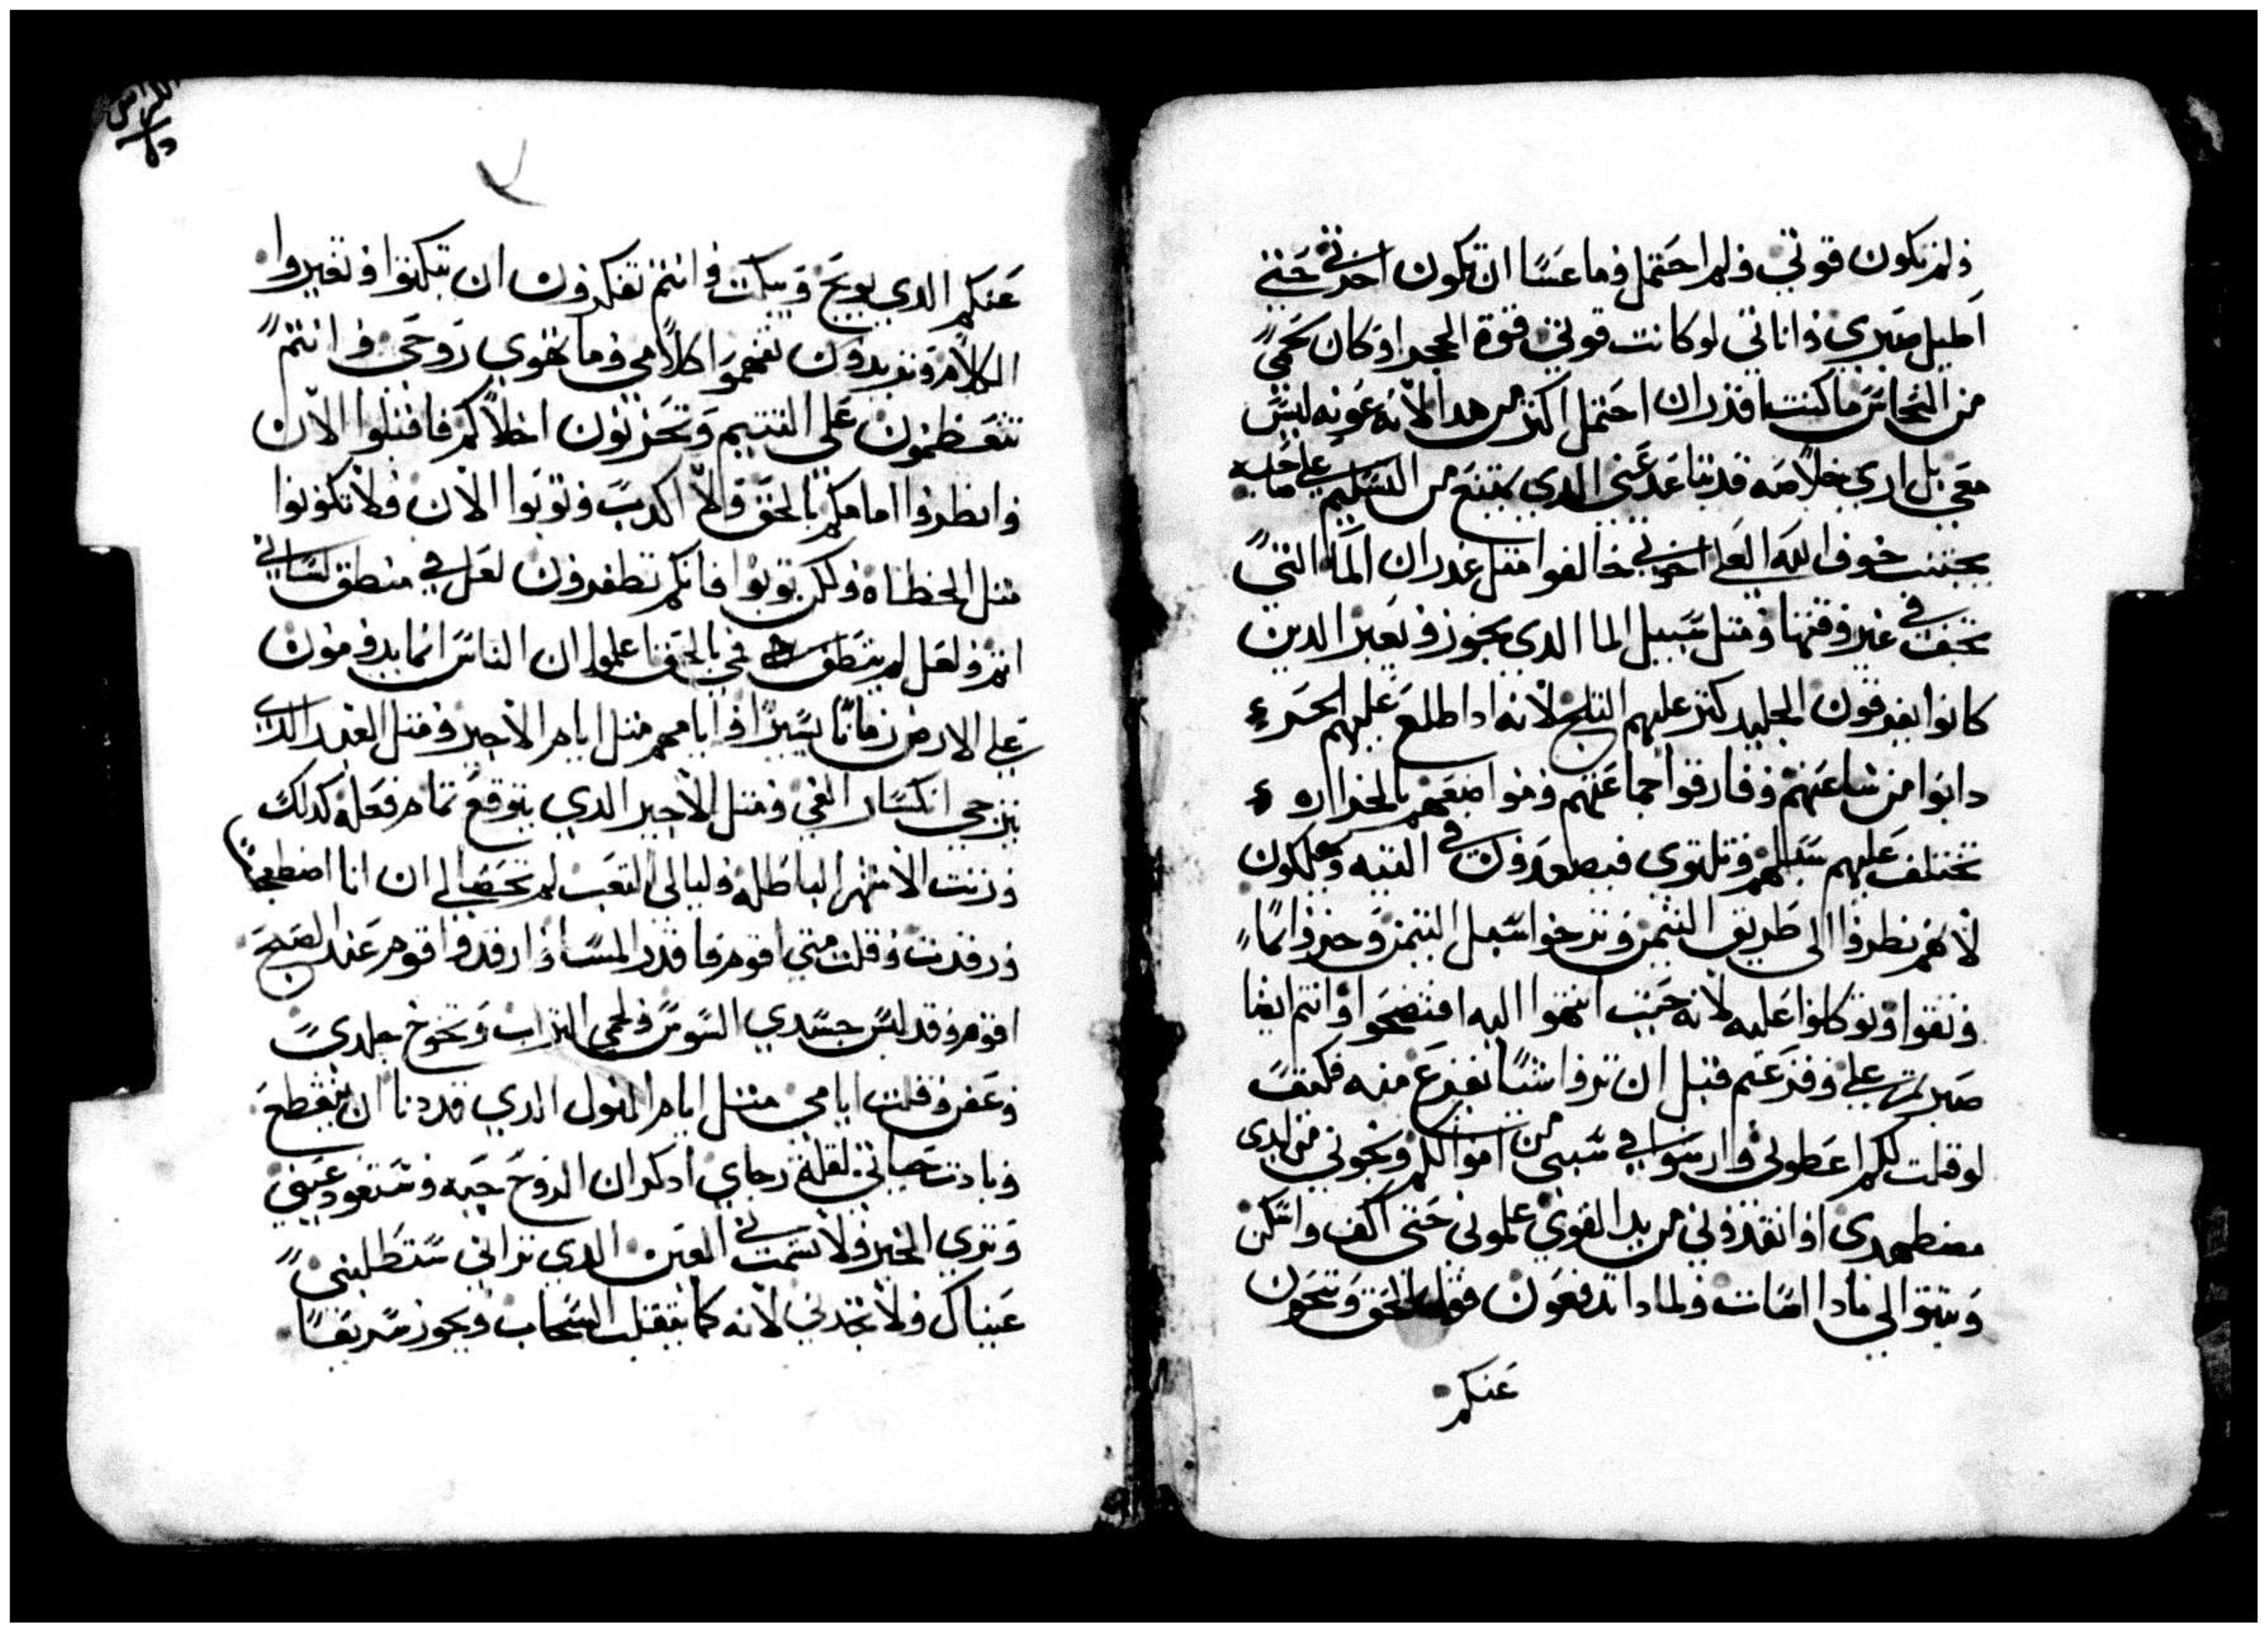 ولم تكون قوتي ولم احتمل وما عسا ان تكون اخرتي حتي
اطيل صبري واناتي لو كانت قوتي قوة الحجر او كان لحمي
من النحاس ما كنت اقدر ان احتمل اكثر من هدا لانه عونه ليس
معي بل اري خلاصه قد تباعد عني الدي يمتنع من التسليم علي صاحبه
يجتنب خوف الله العلي اخوتي خالفوا متل غدران الما التي
تجف في غير وقتها ومتل سبيل الما الدي يجوز ويعبر الدين
كانوا يفرقون الجليد كتر عليهم التلج لانه ادا طلع عليهم الحر
دابوا من ساعتهم وفارقوا حماعتهم ومواضعهم بالحراره
تختلف عليهم سبلهم وتلتوي فيصعدون في التيه ويهلكون
لانهم نظروا الي طريق التيمن وترجوا سبل التيمن وخزوا لما
وتقوا وتوكلوا عليه لانه حيت انتهوا اليه افتضحوا وانتم ايضا
صرتم علي وفزعتم قبل ان تروا شيا يفزع منه فكيف
لو قلت لكم اعطوني وارشوا في سببي من اموالكم ونجوني من ايدي
مضطهدي او انقدوني من يد القوي علموني حتي اكف واسكن
وبينوا لي مادا اسات ولمادا تدفعون قول الحق وتنحون
عنكم
عنكم الدي يوبخ ويبكت وانتم تفكرون ان تبكتوا وتغيروا
الكلام وتريدون تفهموا كلامي وما تقوي روحي وانتم
تتعظمون علي اليتيم وتحزنون اخلاكم فاقبلوا الان
وانظروا امامكم بالحق والا اكدب وتوبوا الان ولا تكونوا
متل الخطاه ولكن توبوا فانكم تظفرون لعل في منطق لساني
اتم ولعل لم ينطق فمي بالحق اعلموا ان الناس انما يدومون
علي الارض زمانا يسيرا وايامهم متل ايام الاجير ومتل العبد الدي
يترجي انكسار الفي ومتل الاجير الدي يتوقع تمام فعله كدلك
ورتت الاشهر الباطله وليالي التعب لم تحص لي ان انا اضطجعت
ورقدت وقلت متي اقوم فاقدر المسا وارقد واقوم عند الصبح
اقوم وقد لبس جسدي السوس ولحمي التراب وتخوخ جلدي
وعفن وقلت ايامي متل ايام النول الدي قد دنا ان ينقطع
وبادت حياتي لقلة رجاي ادكر ان الروح حيه وستعود عيني
وتري الخير ولا تسمت في العين الدي تراني ستطلبني
عيناك ولا تجدني لانه كما يتقلب السحاب ويجوز سريعا